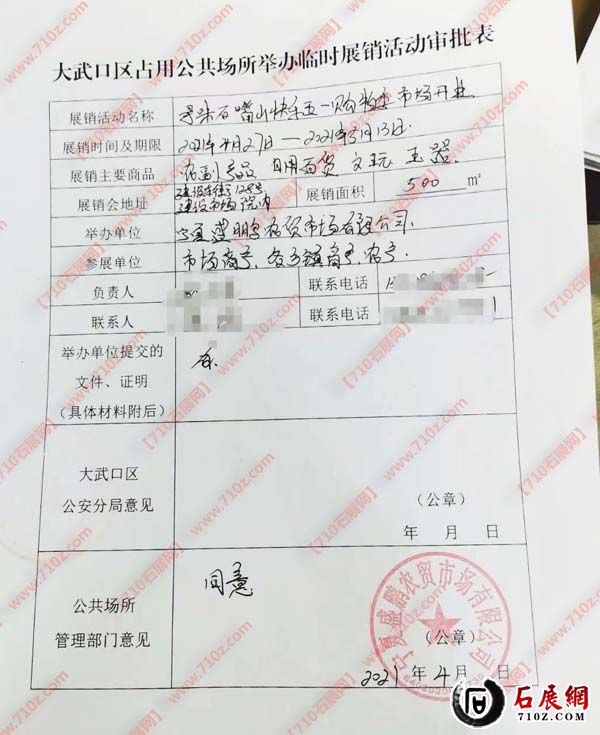 大武口区占用公共场所举办临时展销活动审批表
展销活动名称 石嘴山快乐五一购物 市场开业
展销时间及期限 2021年4月27日—2021年5月13日
展销主要商品 农副产品 日用百货 文玩 玉器
展销会地址 建设东街128号 建设市场院内 展销面积 500 m²
举办单位 宁夏盛鹏农贸市场有限公司
参展单位 市场商户、各乡镇商户、农户
负责人 联系电话
联系人 联系电话
举办单位提交的
文件、证明
(具体材料附后)
有
大武口区
公安分局意见
(公章)
年 月 日
公共场所
管理部门意见
同意
宁夏盛鹏农贸市场有限公司
(公章)
2021年4月 日
【710石展网】 www.710z.com
石展網
710Z.COM